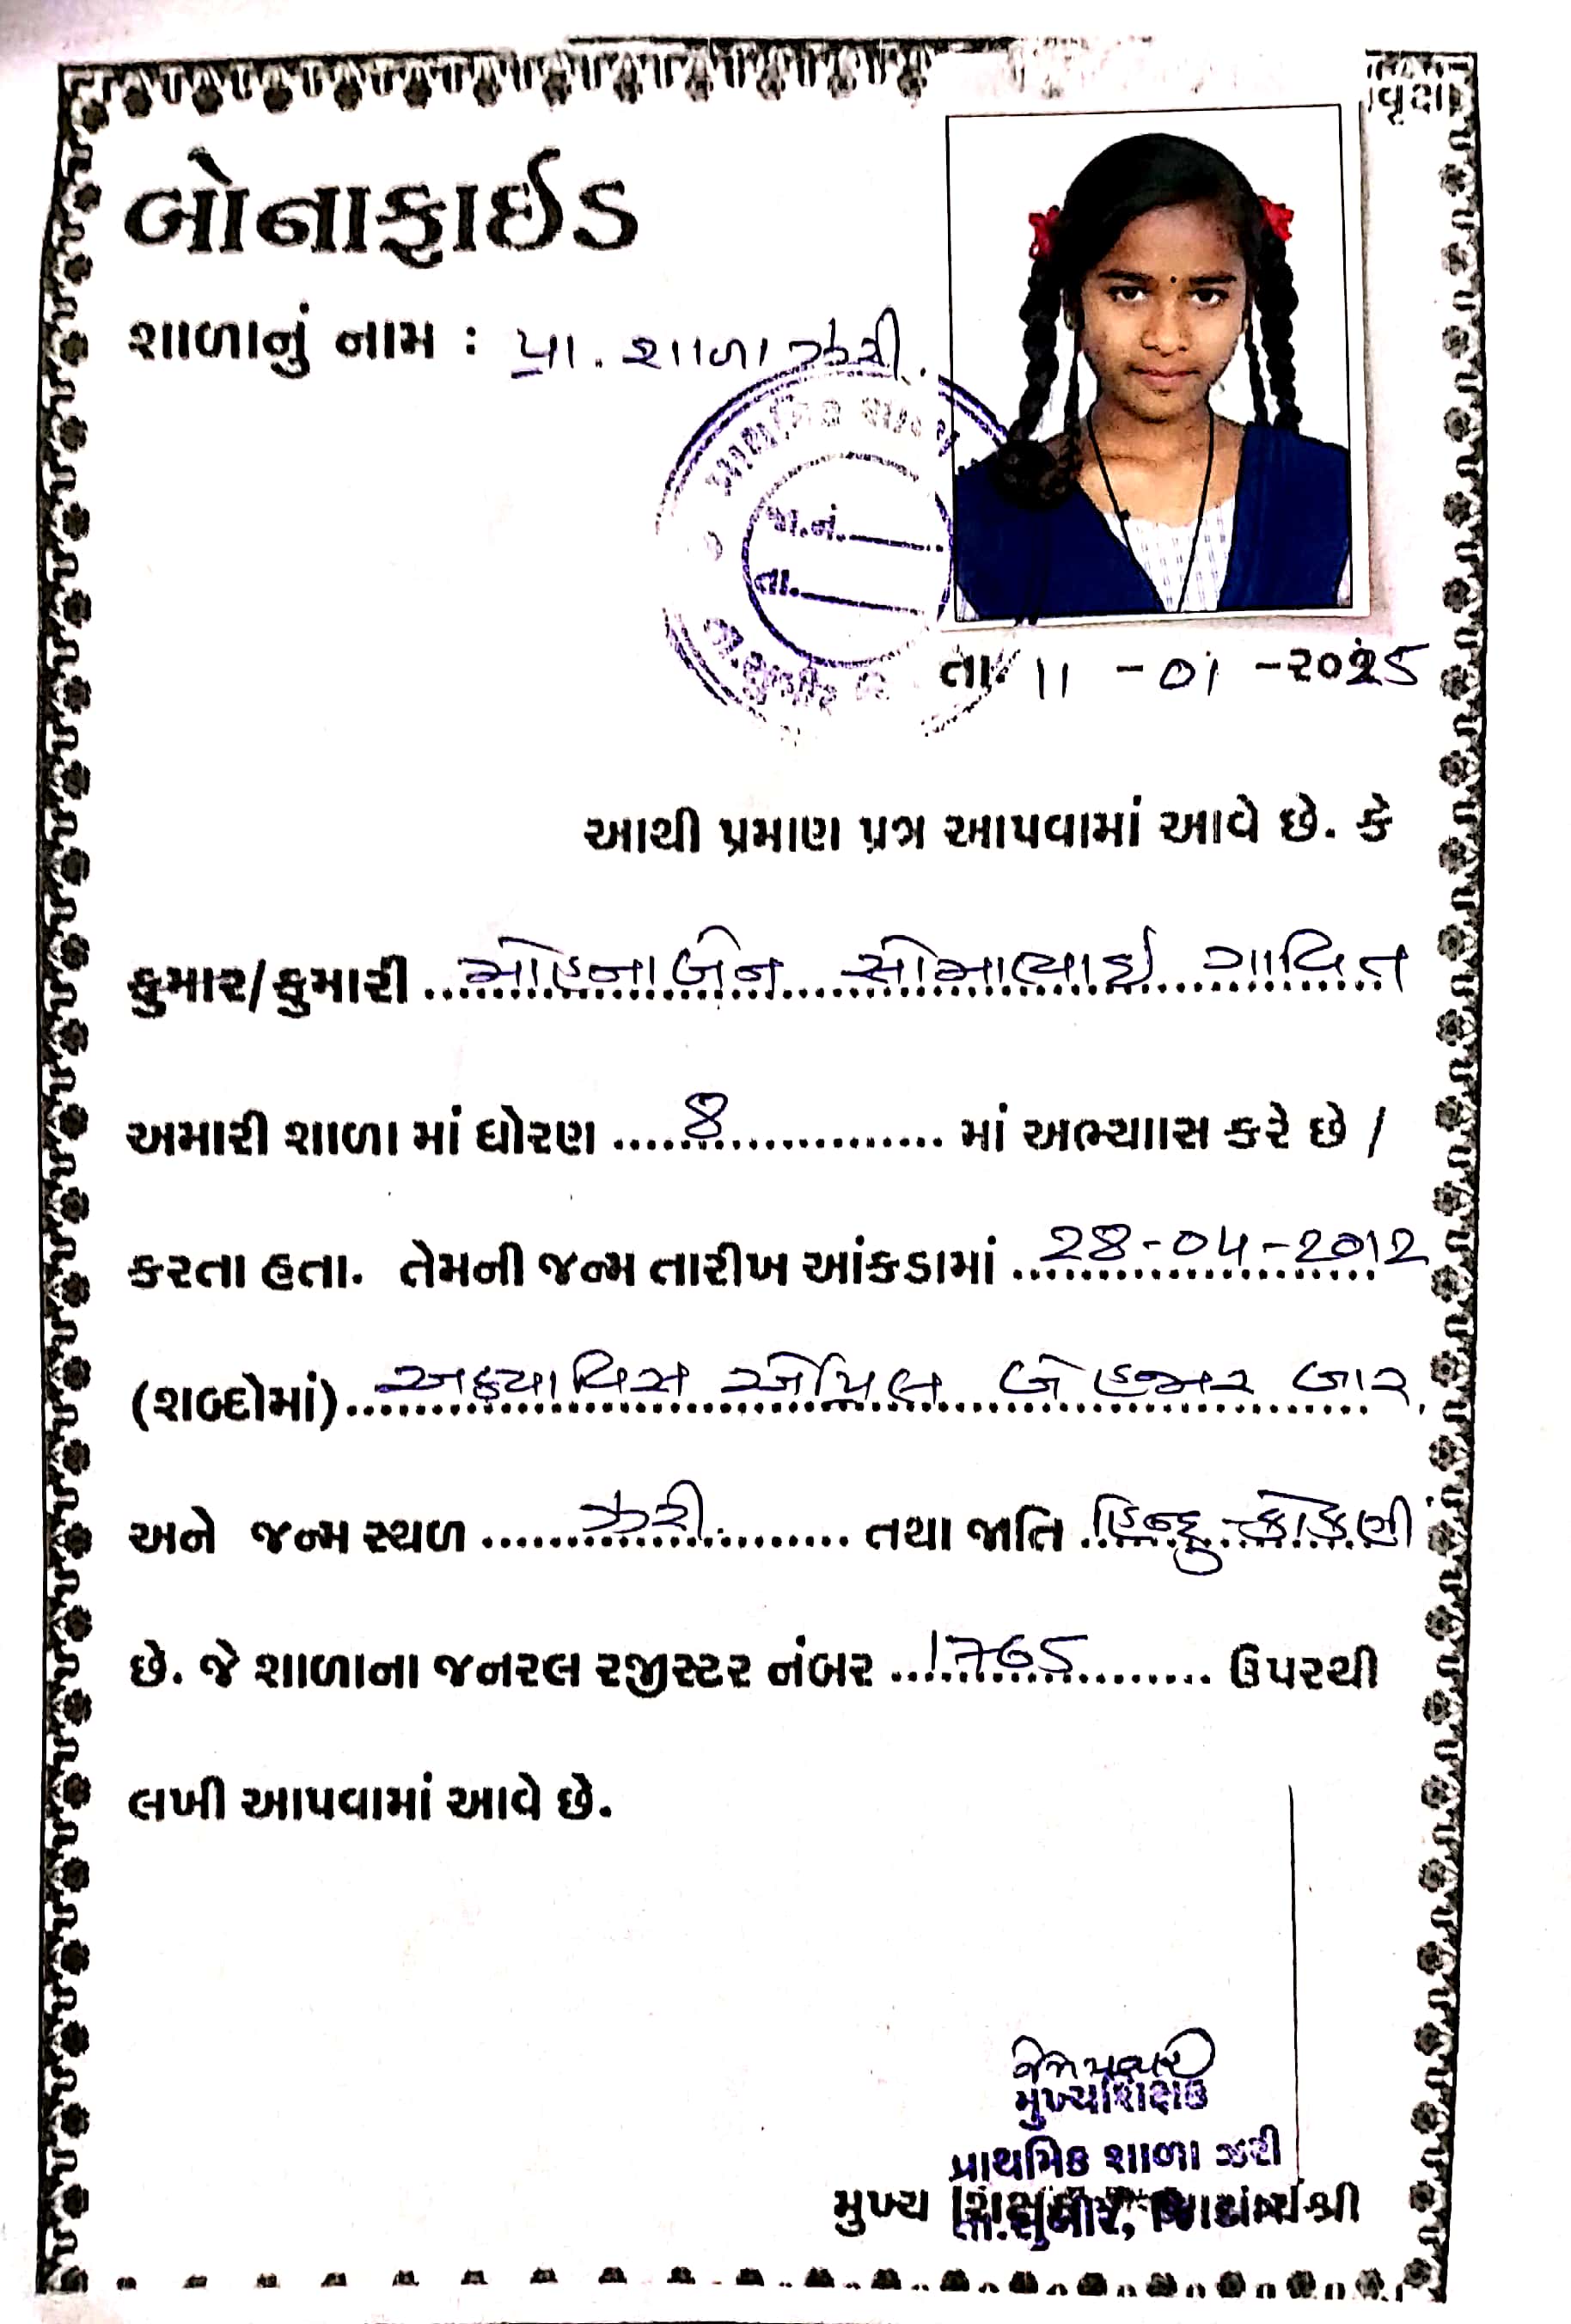 વૃક્ષ
બોનાફાઈડ
શાળાનું નામ : પ્રા. શાળા ઝરી.
પ્રાથમિક શાળા
જા.નં.
તા.
તા.સુબીર
તા. 11 - 01 - ૨૦૨5
આથી પ્રમાણ પત્ર આપવામાં આવે છે. કે
કુમાર/કુમારી મોહનાબેન સોમાભાઈ ગાવિત
અમારી શાળા માં ધોરણ 8 માં અભ્યાાસ કરે છે /
કરતા હતા. તેમની જન્મ તારીખ આંકડામાં 28-04-2012
(શબ્દોમાં) અઠયાવિસ એપ્રિલ બે હજાર બાર.
અને જન્મ સ્થળ ઝરી. તથા જાતિ હિન્દુ-કોકણી
છે. જે શાળાના જનરલ રજીસ્ટર નંબર 1765 ઉપરથી
લખી આપવામાં આવે છે.
મુખ્યશિક્ષક
પ્રાથમિક શાળા ઝરી
તા.સુબીર, જિ.ડાંગ
મુખ્ય શિક્ષક